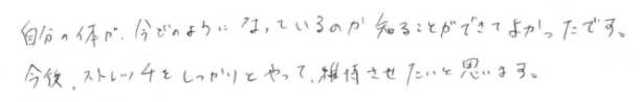 自分の体が、今どのようになっているのか知ることができてよかったです。
今後、ストレッチをしっかりとやって、維持させたいと思います。